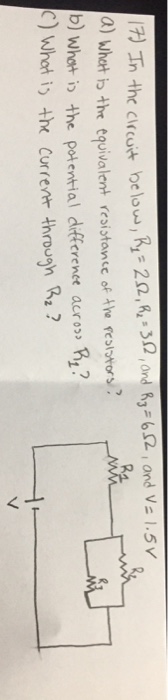 17) In the circuit below, R₁ = 2Ω, R₂ = 3Ω, and R₃ = 6Ω, and V = 1.5V
a) What is the equivalent resistance of the resistors?
b) What is the potential difference across R₁?
c) What is the current through R₂?
R1
R2
R3
V